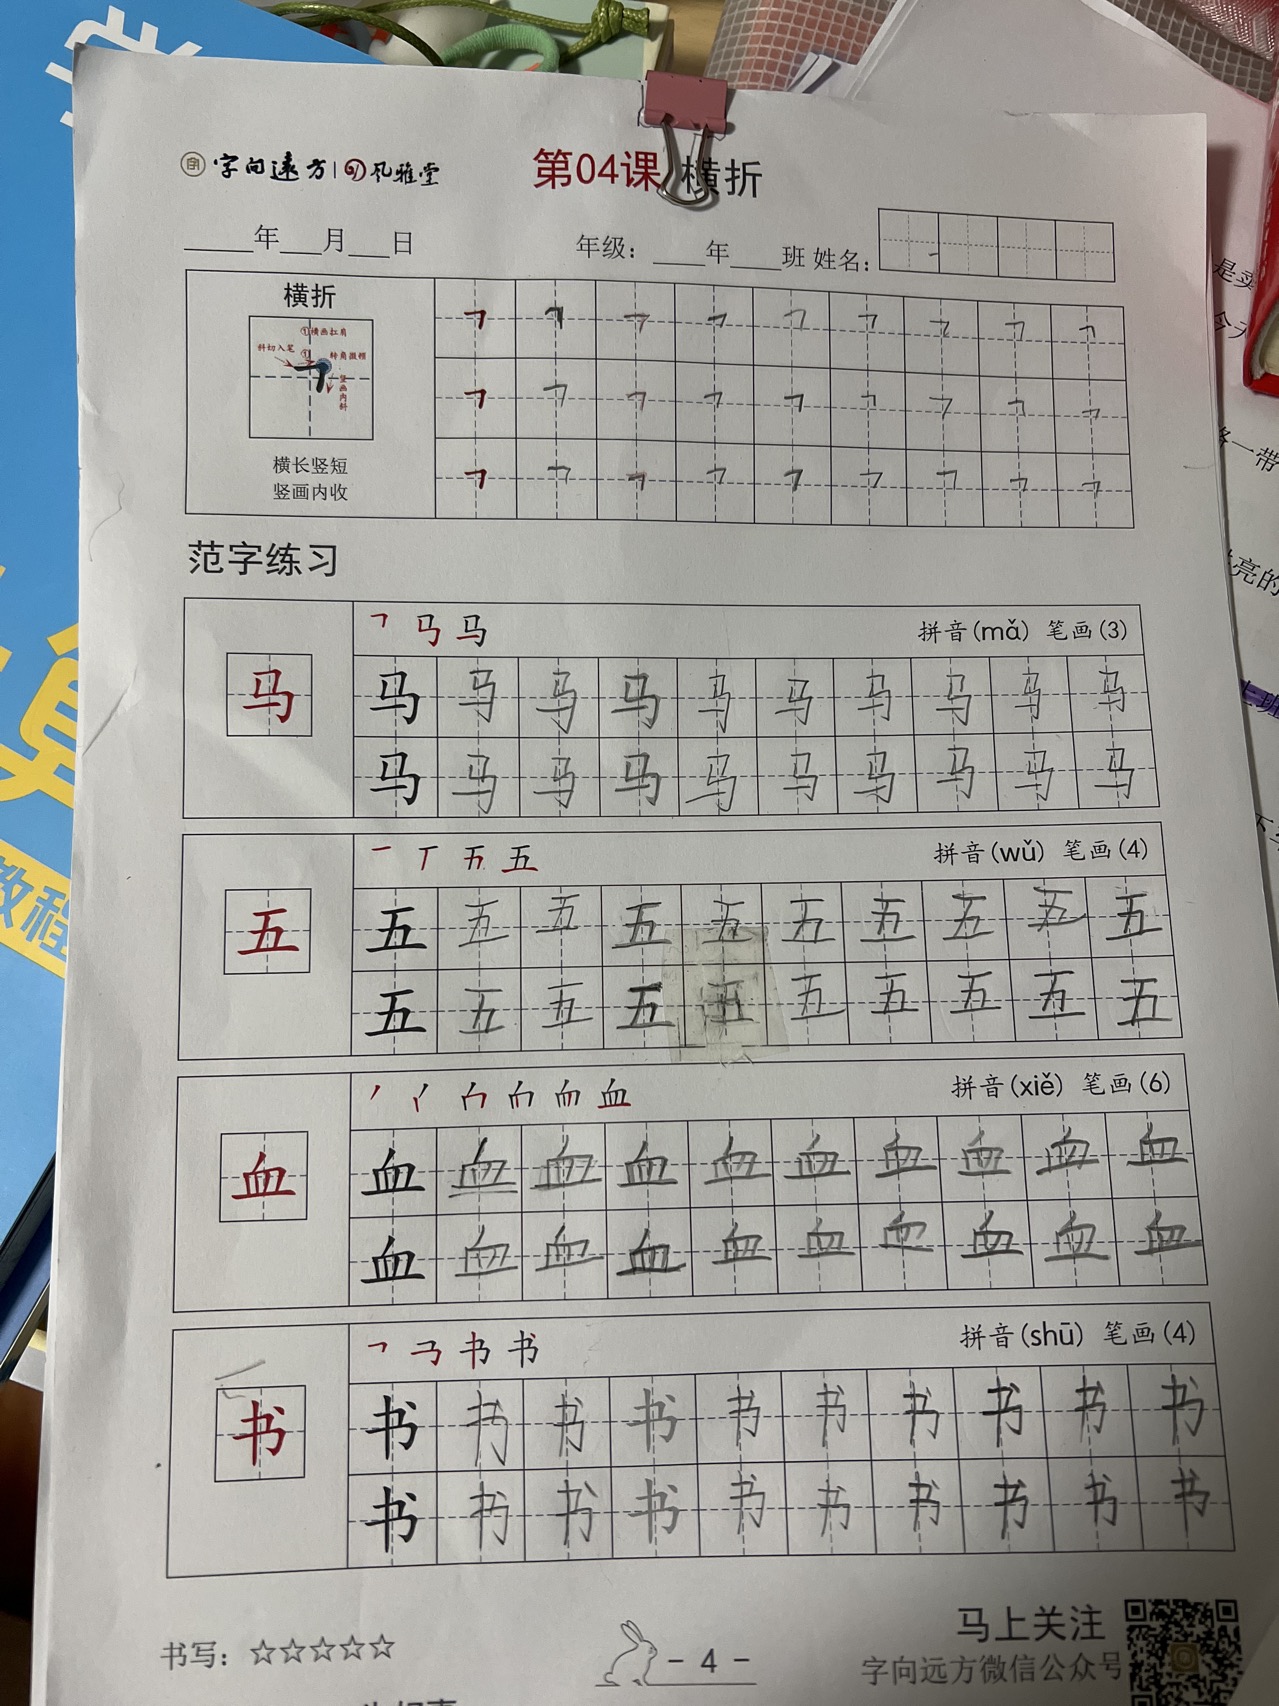 字向远方 风雅堂 第04课 横折
年 月 日 年级: 年 班 姓名:
横折
①横画扛肩
斜切入笔 ① 转角微顿
竖画内斜
横长竖短
竖画内收
范字练习
马 拼音(mǎ) 笔画(3)
马 马 马 马 马 马 马 马 马 马 马
马 马 马 马 马 马 马 马 马 马
五 拼音(wǔ) 笔画(4)
五 五 五 五 五 五 五 五 五 五 五
五 五 五 五 五 五 五 五 五 五
血 拼音(xiě) 笔画(6)
血 血 血 血 血 血 血 血 血 血 血
血 血 血 血 血 血 血 血 血 血
书 拼音(shū) 笔画(4)
书 书 书 书 书 书 书 书 书 书 书
书 书 书 书 书 书 书 书 书 书
书写: ☆☆☆☆☆ - 4 - 马上关注
字向远方微信公众号
教程
是卖
今天
一带
亮的
上班